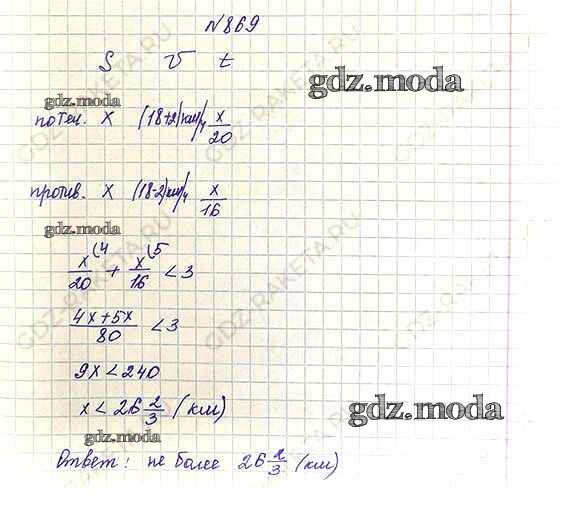 №869
S V t
gdz.moda
gdz.moda
по теч. x (18+2) км/ч x/20
против. x (18-2) км/ч x/16
gdz.moda
x/20 (4 + x/16 (5 < 3
4x+5x/80 < 3
9x < 240
x < 26 2/3 (км)
gdz.moda
gdz.moda
Ответ: не более 26 2/3 (км)
GDZ-RAKETA.RU
GDZ-RAKETA.RU
GDZ-RAKETA.RU